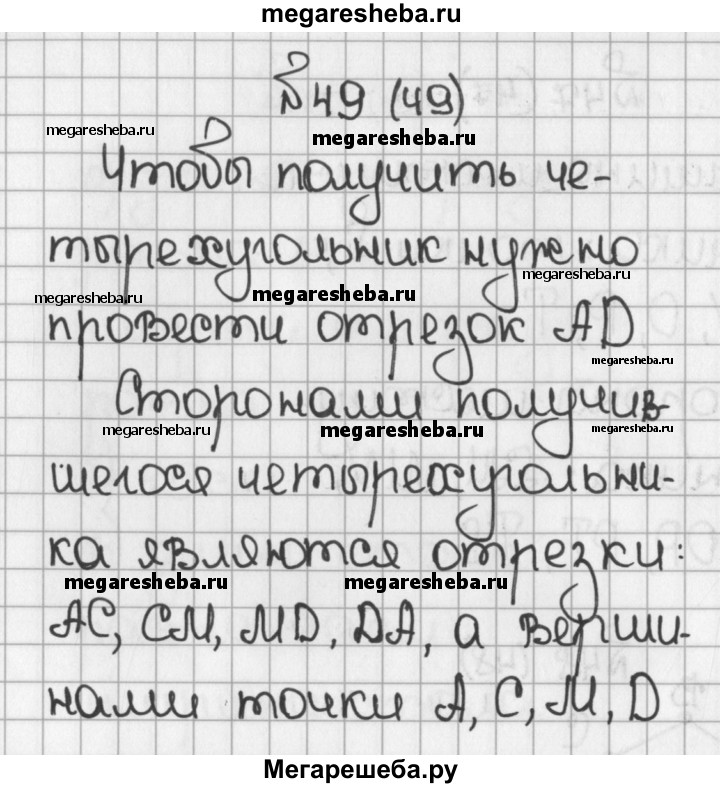 megaresheba.ru
№49 (49)
megaresheba.ru
megaresheba.ru
Чтобы получить че-
тырехугольник нужно
megaresheba.ru
megaresheba.ru
megaresheba.ru
провести отрезок AD
megaresheba.ru
Сторонами получив-
megaresheba.ru
megaresheba.ru
megaresheba.ru
шегося четырехугольни-
ка являются отрезки:
megaresheba.ru
megaresheba.ru
AC, CM, MD, DA, а верши-
нами точки A, C, M, D
Мегарешеба.ру